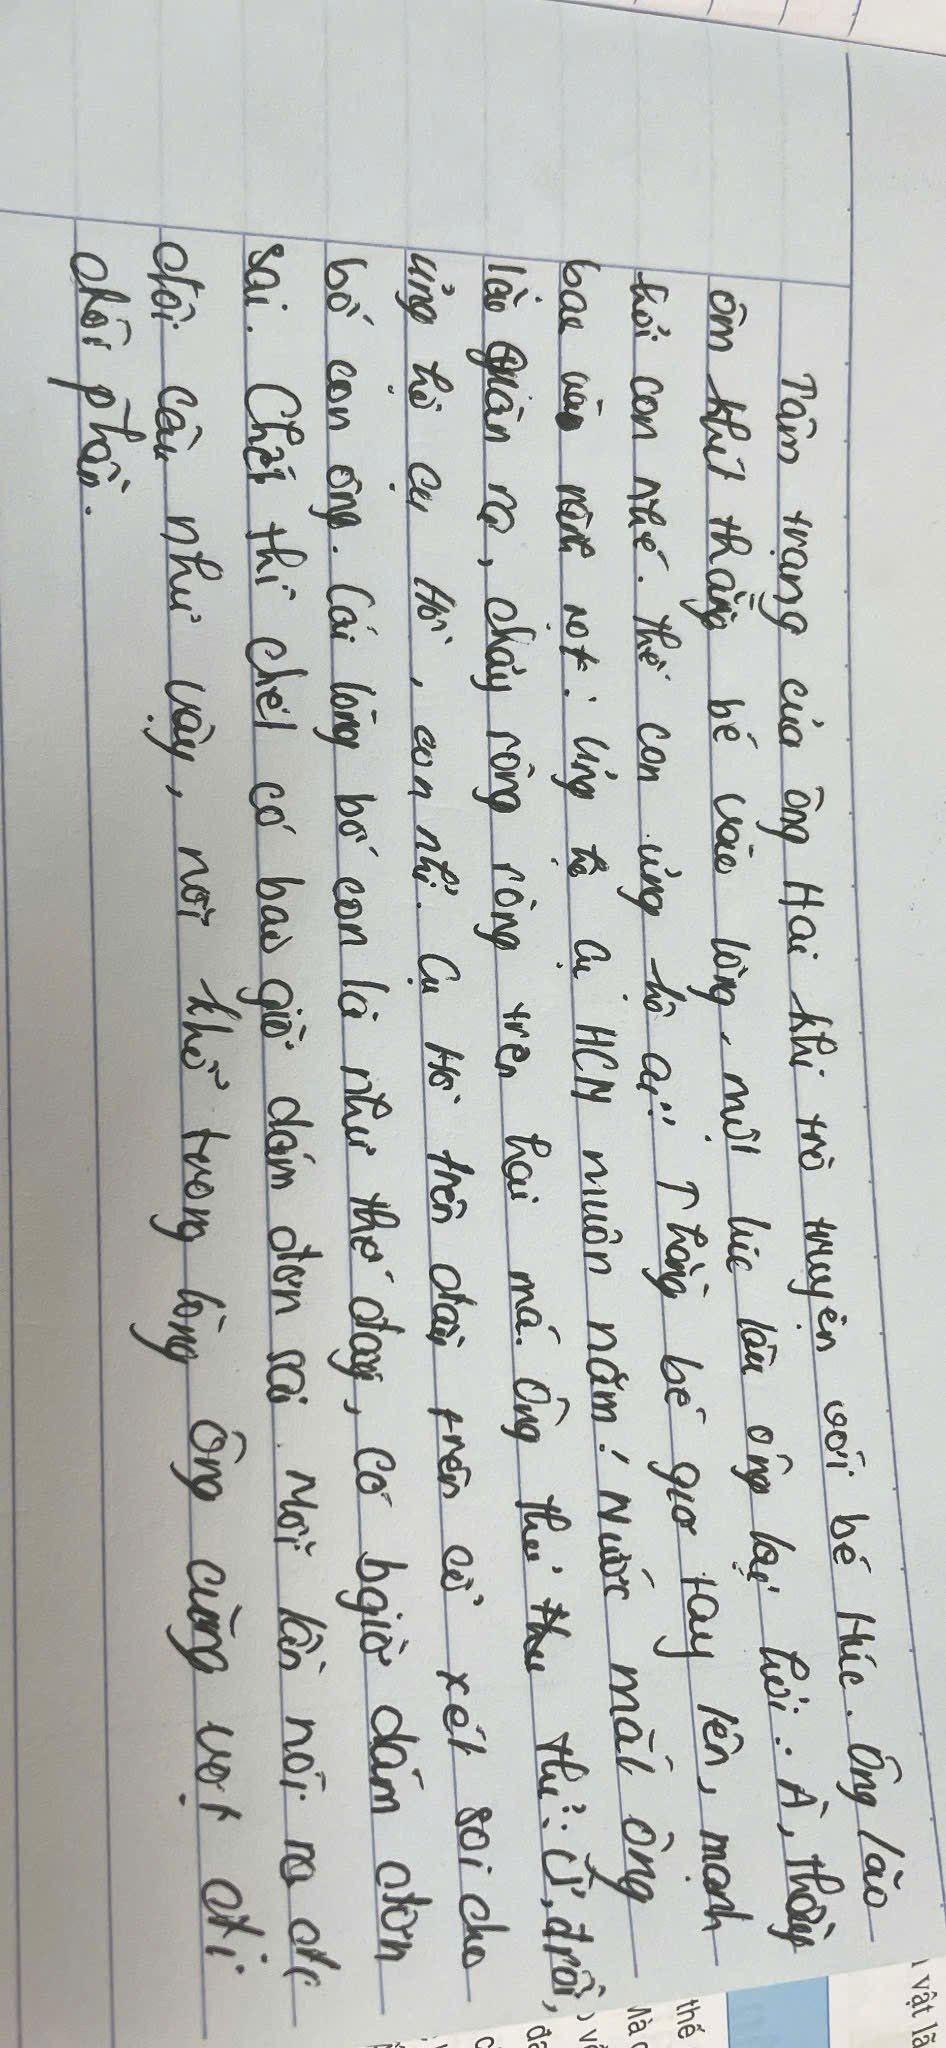 Tâm trạng của ông Hai khi trò truyện với bé Húc. Ông lão
ôm khít thằng bé vào lòng, một lúc lâu ông lại hỏi: À, thầy
hỏi con nhé. Thế con ủng hộ ai? Thằng bé giơ tay lên, mạnh
bạo và rành rọt: Ủng hộ cụ HCM muôn năm! Nước mắt ông
lão giàn ra, chảy ròng ròng trên hai má. Ông thủ thỉ: Ừ, đrồi,
ủng hộ cụ Hồ, con nhỉ. Cụ Hồ trên đầu trên cổ xét soi cho
bố con ông. Cái lòng bố con là như thế đấy, có bgiờ dám đơn
sai. Chết thì chết có bao giờ dám đơn sai. Mỗi lần nói ra đc
đôi câu như vậy, nỗi khổ trong lòng ông cũng vợt đi
đôi phần.
vật lã
thế